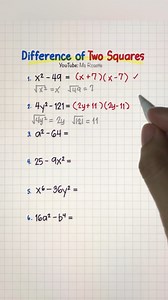 Difference of Two Squares
YouTube: Ms Rosette
1. x² - 49 = (x+7)(x-7) ✓
√x² = x √49 = 7
2. 4y² - 121 = (2y+11)(2y-11)
√4y² = 2y √121 = 11
3. a² - 64 =
4. 25 - 9x² =
5. x⁶ - 36y² =
6. 16a² - b⁴ =